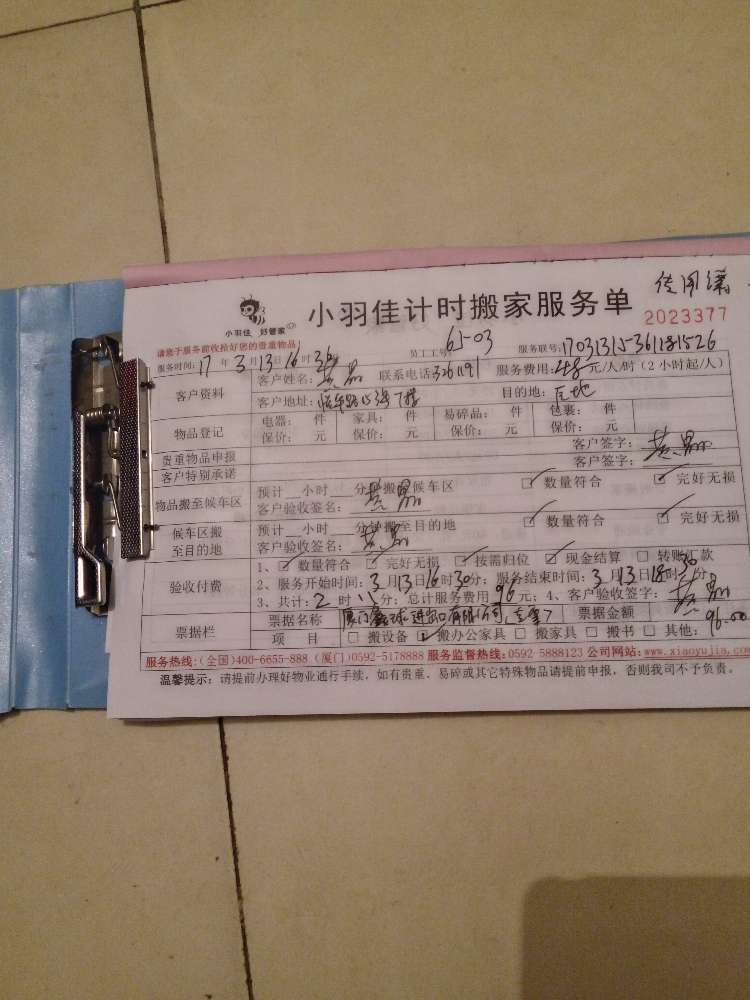 小羽佳 好管家
小羽佳计时搬家服务单
2023377
请您于服务前收拾好您的贵重物品
员工工号 61-03
服务联号: 17031315-361181526
服务时间: 17 年 3 月 13 日 16 时 30
客户资料
客户姓名: 联系电话: 3261191 服务费用: 48 元/人/时(2小时起/人)
客户地址: 目的地:
物品登记
电器: 件 家具: 件 易碎品: 件 包裹: 件
保价: 元 保价: 元 保价: 元 保价: 元
贵重物品申报 客户签字:
客户特别承诺 客户签字:
物品搬至候车区
预计__小时__分钟搬至候车区 ☑ 数量符合 ☑ 完好无损
客户验收签名:
候车区搬至目的地
预计__小时__分钟搬至目的地 ☑ 数量符合 ☑ 完好无损
客户验收签名:
验收付费
1、☑ 数量符合 ☑ 完好无损 ☑ 按需归位 ☑ 现金结算 □ 转账汇款
2、服务开始时间: 3 月 13 日 16 时 30 分; 服务结束时间: 3 月 13 日 18 时 30 分
3、共计: 2 时 分; 总计服务费用 96 元; 4、客户验收签字:
票据栏
票据名称 进出口有限公司 票据金额 96.00
项 目 □ 搬设备 ☑ 搬办公家具 □ 搬家具 □ 搬书 □ 其他:
服务热线:(全国)400-6655-888 (厦门)0592-5178888 服务监督热线:0592-5888123 公司网站:www.xiaoyujia.com
温馨提示: 请提前办理好物业通行手续, 如有贵重、易碎或其它特殊物品请提前申报, 否则我司不予负责。